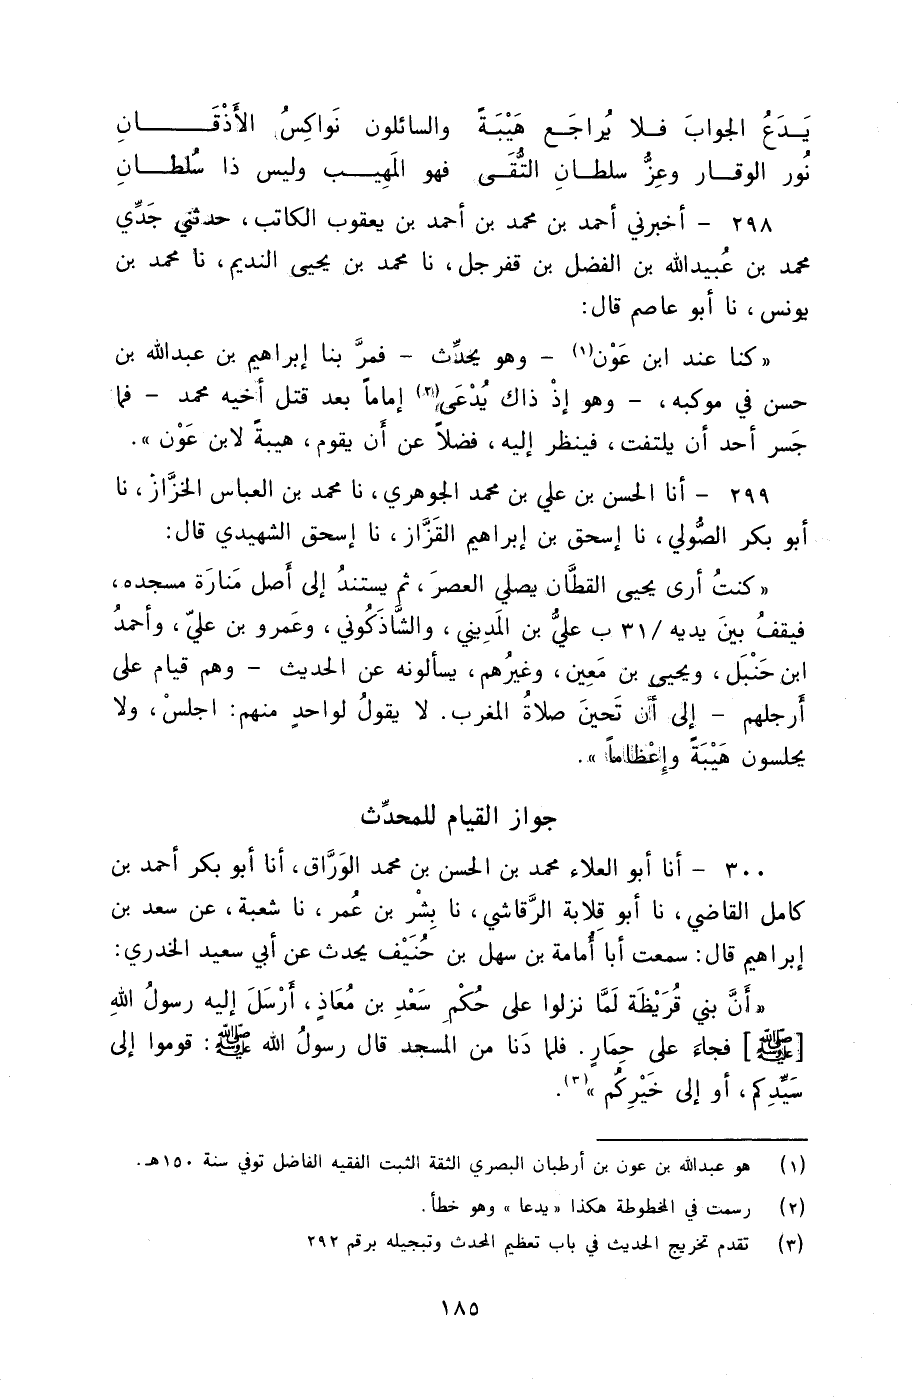 يَــدَعُ الجوابَ فــلا يُراجَــع هَيْبَــةً والسائلون نَواكِسُ الأَذْقَــــــانِ
نُور الوقــار وعِزُّ سلطــانِ التُّقَــى فهو المَهِيــــب وليس ذا سُلطــــانِ
٢٩٨ - أخبرني أحمد بن محمد بن أحمد بن يعقوب الكاتب، حدثني جَدِّي
محمد بن عُبيدالله بن الفضل بن قفرجل، نا محمد بن يحيى النديم، نا محمد بن
يونس، نا أبو عاصم قال:
«كنا عند ابن عَوْن(١) - وهو يحدِّث - فمرَّ بنا إبراهيم بن عبدالله بن
حسن في موكبه، - وهو إذْ ذاك يُدْعَى(٢) إماماً بعد قتل أخيه محمد - فما
جَسر أحد أن يلتفت، فينظر إليه، فضلاً عن أَن يقوم، هيبةً لابن عَوْن».
٢٩٩ - أنا الحسن بن علي بن محمد الجوهري، نا محمد بن العباس الخزَّاز، نا
أبو بكر الصُّولي، نا إسحق بن إبراهيم القَزَّاز، نا إسحق الشهيدي قال:
«كنتُ أرى يحيى القطَّان يصلي العصرَ، ثم يستندُ إلى أَصل مَنارَة مسجده،
فيقفُ بينَ يديه /٣١ ب عليُّ بن المَديني، والشَّاذَكُوني، وعَمرو بن عليّ، وأحمدُ
ابن حَنْبَل، ويحيى بن مَعِين، وغيرُهم، يسألونه عن الحديث - وهم قيام على
أَرجلهم - إلى أَن تَحينَ صلاةُ المغرب. لا يقولُ لواحدٍ منهم: اجلسْ، ولا
يجلسون هَيْبَةً وإِعْظاماً».
جواز القيام للمحدِّث
٣٠٠ - أنا أبو العلاء محمد بن الحسن بن محمد الوَرَّاق، أنا أبو بكر أحمد بن
كامل القاضي، نا أبو قِلابة الرَّقاشي، نا بِشْر بن عُمر، نا شعبة، عن سعد بن
إبراهيم قال: سمعت أبا أُمامة بن سهل بن حُنَيْف يحدث عن أبي سعيد الخدري:
«أَنَّ بني قُرَيْظَة لَمَّا نزلوا على حُكْمِ سَعْدِ بن مُعَاذٍ، أَرْسَلَ إليه رسولُ اللهِ
[ﷺ] فجاءَ على حِمارٍ. فلما دَنا من المسجد قال رسولُ الله ﷺ: قوموا إلى
سَيِّدِكم، أو إلى خَيْرِكُم»(٣).
(١) هو عبدالله بن عون بن أرطبان البصري الثقة الثبت الفقيه الفاضل توفي سنة ١٥٠هـ.
(٢) رسمت في المخطوطة هكذا «يدعا» وهو خطأ.
(٣) تقدم تخريج الحديث في باب تعظيم المحدث وتبجيله برقم ٢٩٢
١٨٥